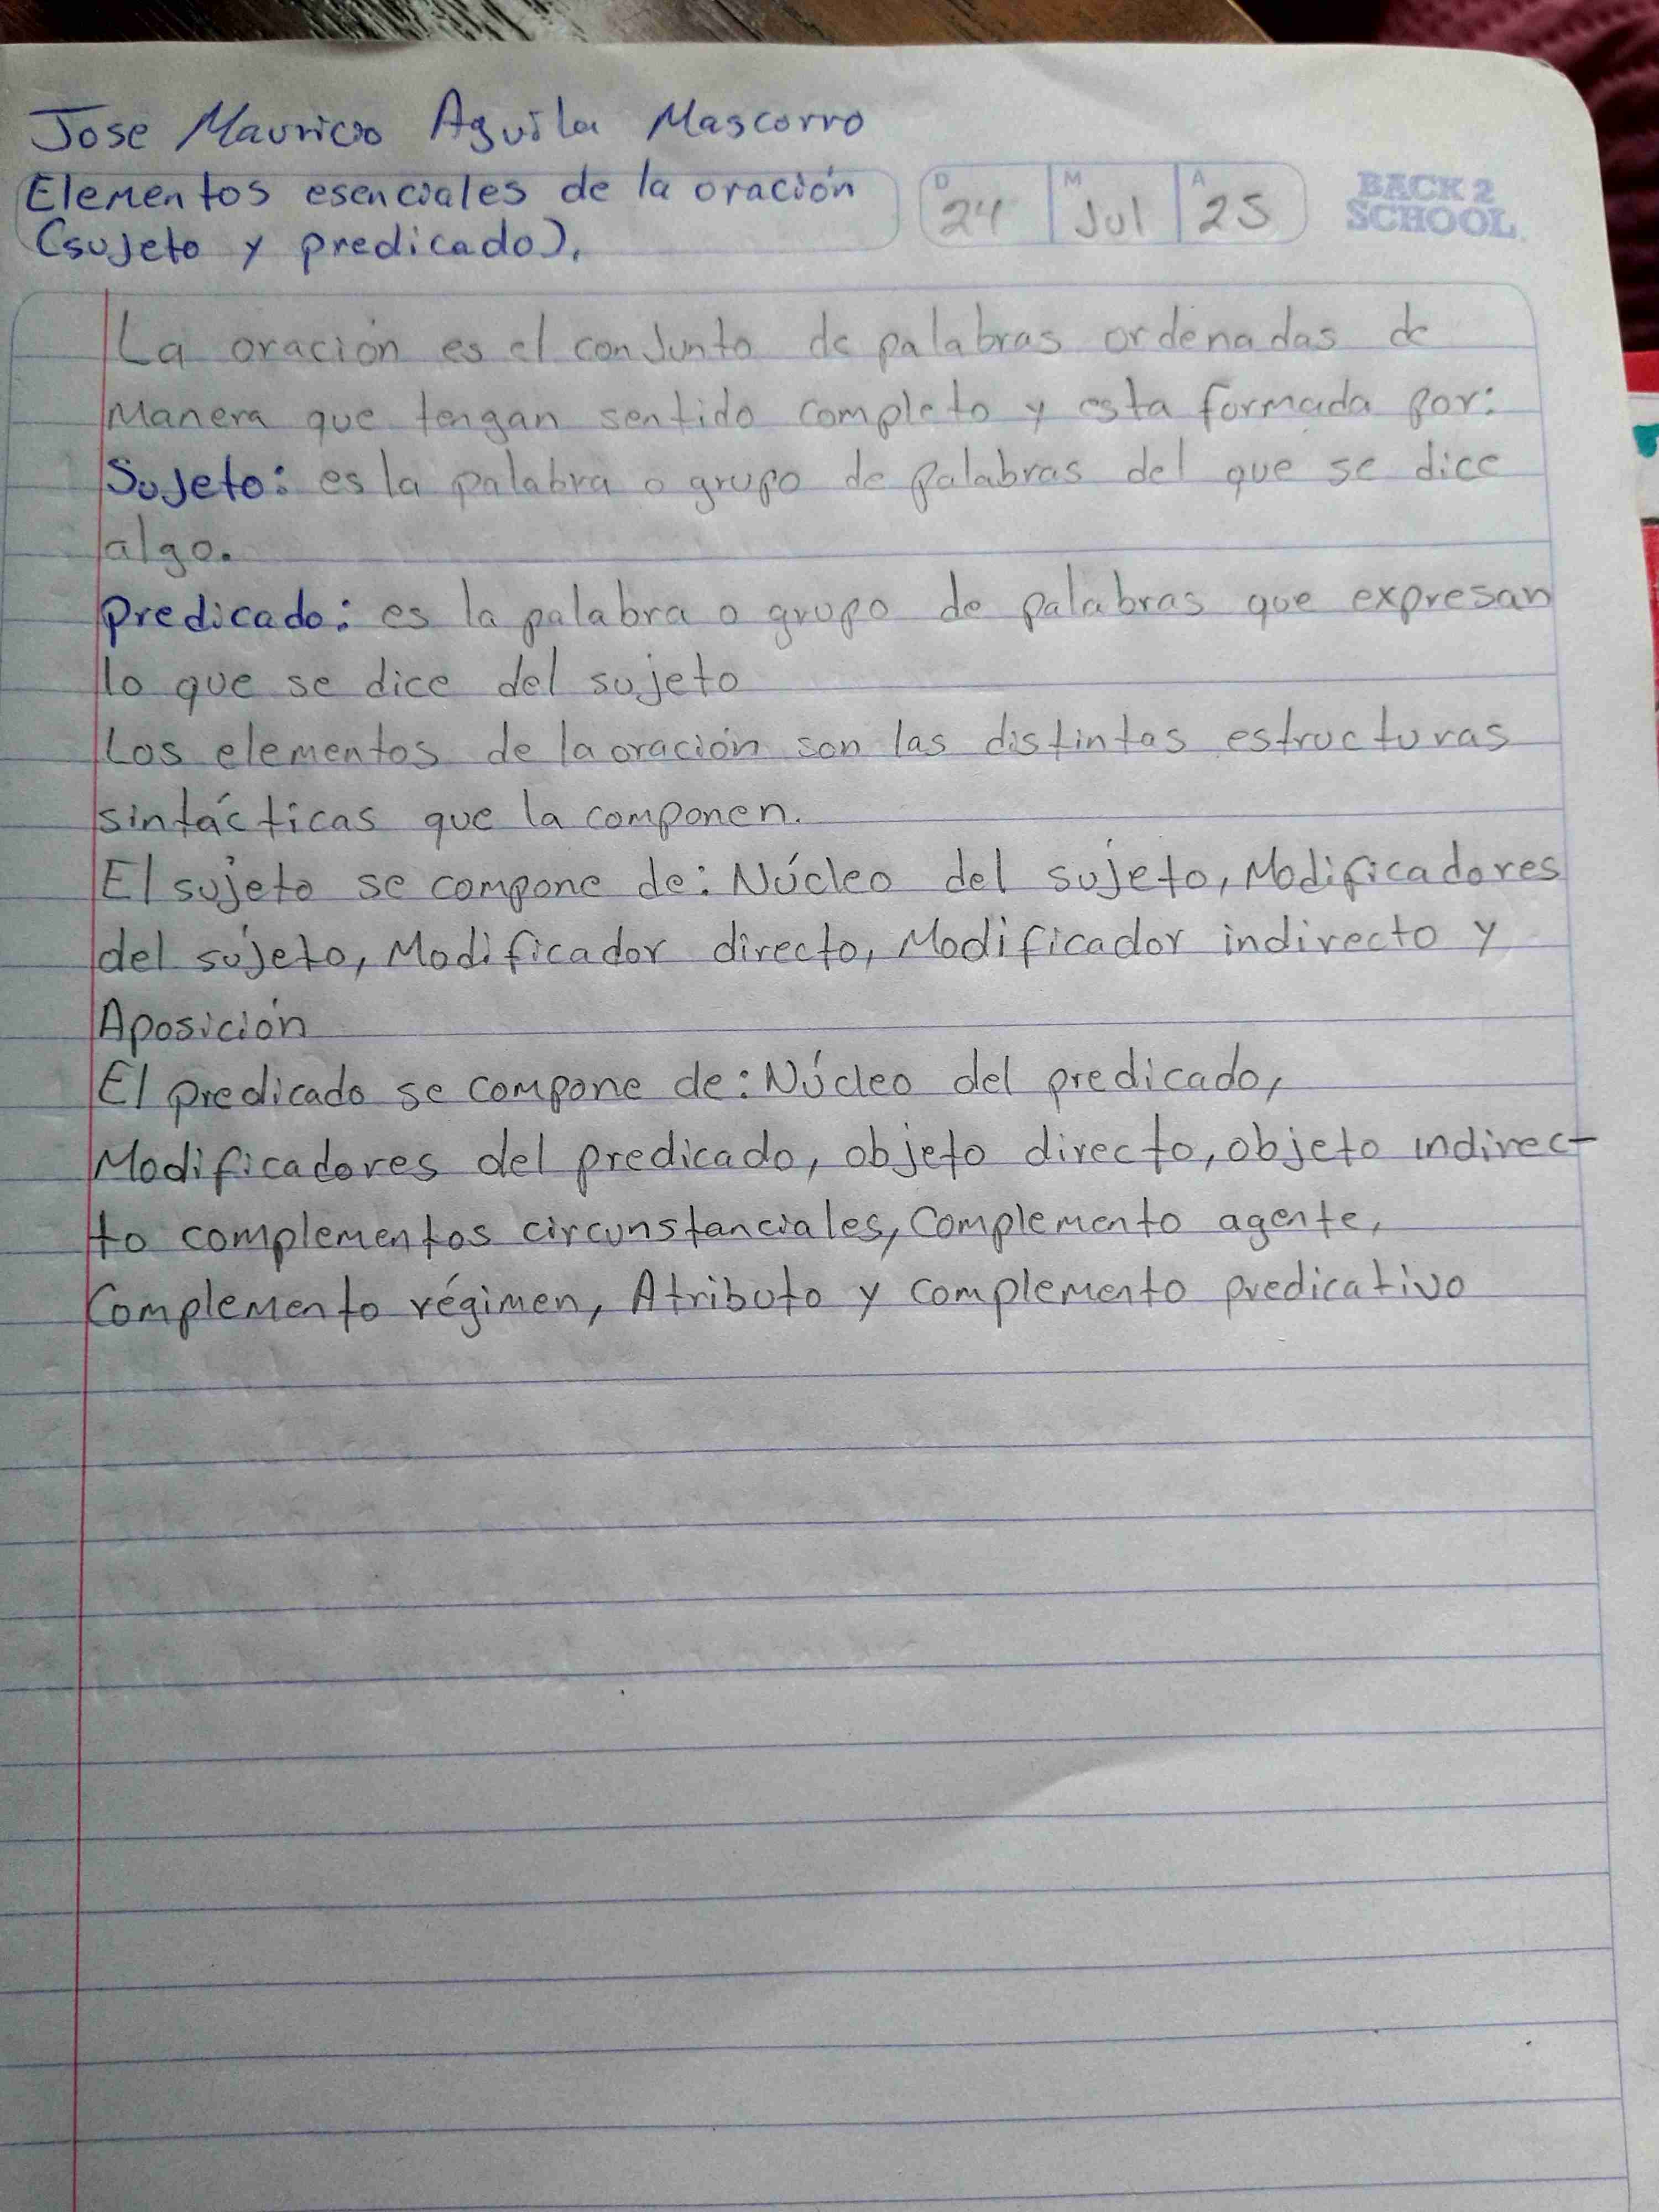 Jose Mauricio Aguila Mascorro
Elementos esenciales de la oración
(sujeto y predicado).
D 24 M Jul A 25
BACK 2
SCHOOL
La oración es el conjunto de palabras ordenadas de
Manera que tengan sentido completo y esta formada por:
Sujeto: es la palabra o grupo de palabras del que se dice
algo.
predicado: es la palabra o grupo de palabras que expresan
lo que se dice del sujeto
Los elementos de la oración son las distintas estructuras
sintácticas que la componen.
El sujeto se compone de: Núcleo del sujeto, Modificadores
del sujeto, Modificador directo, Modificador indirecto y
Aposición
El predicado se compone de: Núcleo del predicado,
Modificadores del predicado, objeto directo, objeto indirec-
to complementos circunstanciales, Complemento agente,
Complemento régimen, Atributo y complemento predicativo